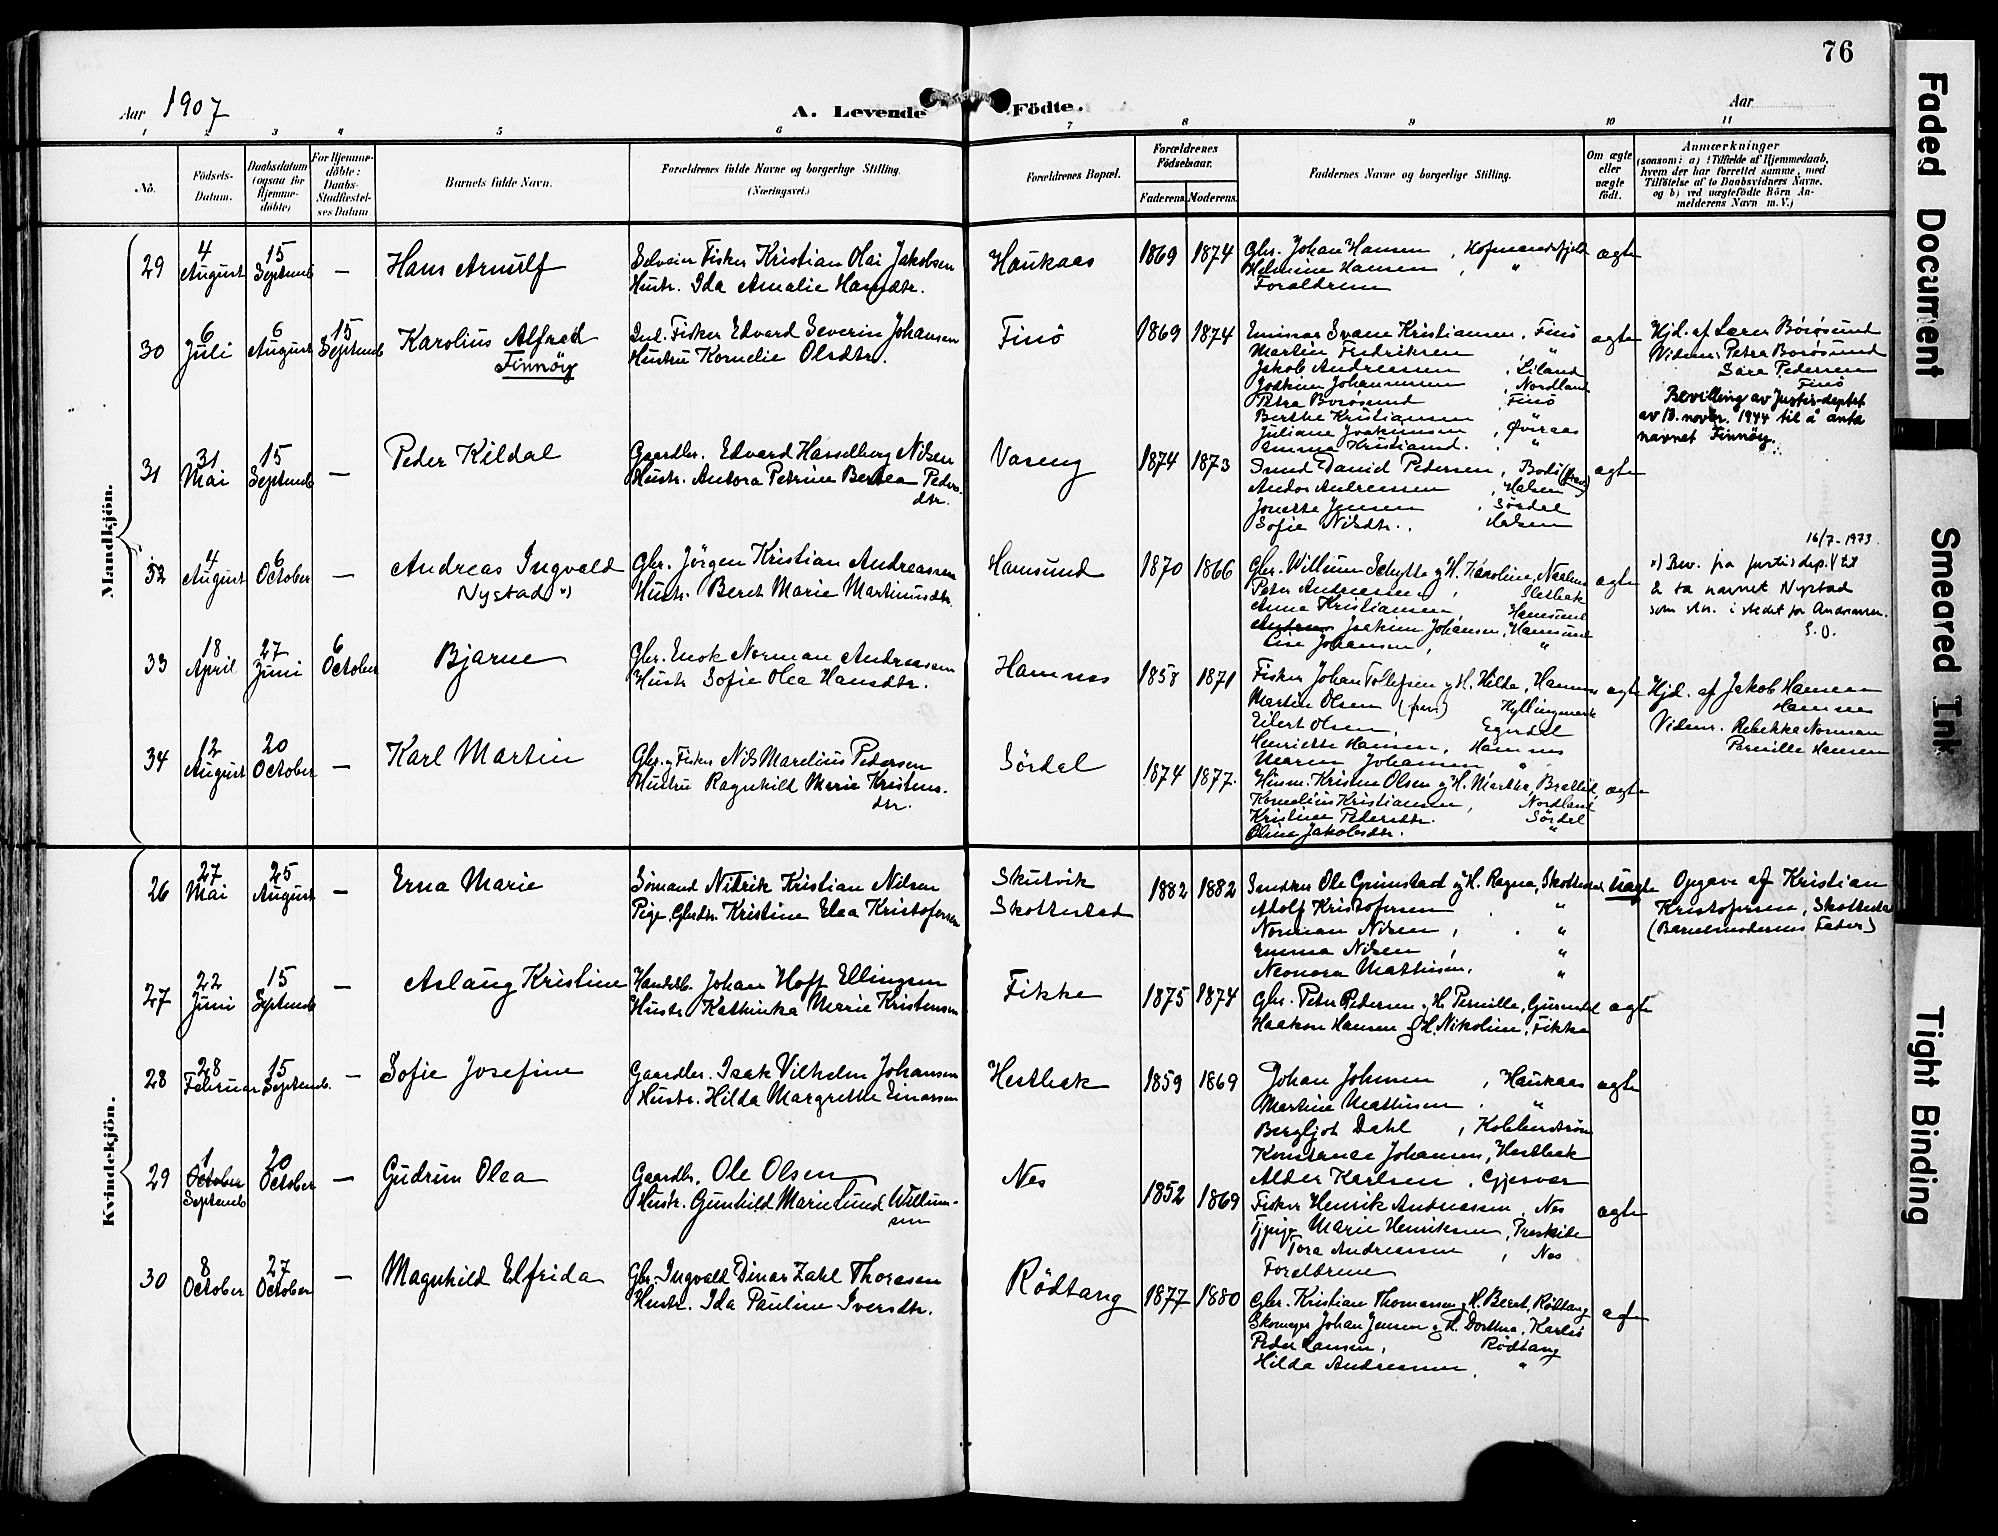 76
Aar 1907
A. Levende Födte.
Aar
1 2 3 4 5 6 7 8 9 10 11
No.
Födsels-Datum.
Daabsdatum (ogsaa for Hjemme-döbte)
For Hjemme-döbte: Daabs-Stadfæstel-ses Datum
Barnets fulde Navn.
Forældrenes fulde Navne og borgerlige Stilling. (Næringsvei.)
Forældrenes Bopæl.
Forældrenes Födselsaar.
Faderens Moderens.
Faddernes Navne og borgerlige Stilling.
Om ægte eller uægte födt.
Anmærkninger
(saasom: a) i Tilfælde af Hjemmedaab,
hvem der har forrettet samme, med
Tilföielse af to Daabsvidners Navne,
og b) ved uægtefödte Börn An-
melderens Navn m. V.)
Mandkjön.
29 4 August 15 Septemb — Hans Arnulf
Selveier Fisker Kristian Olai Jakobsen
Hustr. Ida Amalie Hansdtr.
Haukaas 1869 1874
Gbr. Johan Hansen, Hofmandsfjeld
Helmine Hansen, "
Forældrene
ægte
30 6 Juli 6 August 15 Septemb Karolius Alfred
Finnöy
Ind. Fisker Edvard Severin Johansen
Hustru Kornelie Olsdtr.
Finö 1869 1874
Emissær Svane Kristiansen, Finö
Martin Fredriksen, "
Jakob Andreassen, Liland
Joakim Johannesen, Nordland
Petra Borösund, Finö
Berthe Kristiansen, "
Juliane Joakimsen, Öviraas
Emma Kristiansd. "
ægte
Hjd. af Lærer Börösund
Vidner: Petra Borösund
Sara Pedersen
Finö
Bevilling av Justisdeptet
av 18. novbr. 1944 til å anta
navnet Finnöy.
31 31 Mai 15 Septemb — Peder Kildal
Gaardbr. Edvard Hasselberg Nilsen
Hustr. Antora Petrine Bertea Peders-
dtr.
Vaseng 1874 1873
Smed David Pedersen, Bodö (frav)
Andor Andreassen, Halsen
Jonette Jensen, Sördal
Sofie Nilsdtr., Halsen
ægte
32 4 August 6 October — Andreas Ingvald
Nystad ×)
Gbr. Jörgen Kristian Andreassen
Hustr. Beret Marie Martinusdtr.
Hamsund 1870 1866
Gbr. Willum Schytte og H. Karoline,
Peter Andreassen, Sletbak
Anna Kristiansen, Hamsund
Joakim Johansen, Hamsund
Lise Johansen, "
ægte
16/7-1973.
×) Bev. fra justisdep. til
å ta navnet Nystad
som sln. i stedet for Andreassen.
S.O.
33 18 April 27 Juni 6 October Bjarne
Gbr. Enok Norman Andreassen
Hustr Sofie Olea Hansdtr.
Hamnes 1858 1871
Fisker Johan Tollefsen og H. Hilda, Hamnes
Martin Olsen (frav) Hyllingmark
Eilert Olsen, Egndal
Henriette Hansen, Hamnes
Maren Johansen "
ægte
Hjd. af Jakob Hansen
Hamnes
Vidner. Rebekke Norman
Pernille Hansen
34 12 August 20 October — Karl Martin
Gbr. og Fisker Nils Marelius Pedersen
Hustru Ragnhild Marie Kristens-
dtr.
Sördal 1874 1877.
Husm. Kristen Olsen og H. Martha,
Kornelius Kristiansen, Nordland
Kristine Pedersdtr. Sördal
Olina Jakobsdtr. "
ægte
Kvindekjön.
26 27 Mai 25 August — Erna Marie
Sömand Nidrik Kristian Nilsen
Pige, Gbrdtr. Kristine Elea Kristofersen
Skutvik
Skottestad
1882 1882
Snedker Ole Grimstad og H. Ragna, Skottestad
Adolf Kristofersen, "
Norman Nilsen, "
Emma Nilsen,
Neonora Mathisen, "
uægte
Opgave af Kristian
Kristofersen, Skottestad
(Barnemoderens Fader)
27 22 Juni 15 Septemb — Aslaug Kristine
Handelsb. Johan Hoff Ellingsen
Hustr Kathinka Marie Kristensen
Fikke 1875 1874
Gbr. Peter Pedersen og H. Pernille,
Haakon Hansen og H. Nikoline, Fikke
ægte
28 28 Februar 15 Septemb. — Sofie Josefine
Gaardbr. Isak Vilhelm Johansen
Hustr. Hilda Margrethe Einarsen
Hestbak 1859 1869
Johan Johnsen, Haukaas
Martine Mathisen, "
Bergljot Dahl,
Konstance Johansen, Hestbak
Aldor Karlsen,
ægte
29 1 October Septemb 20 October — Gudrun Olea
Gaardbr. Ole Olsen
Hustr. Gunhild Marie Lund Willum-
sen
Nes 1852 1869
Fisker Henrik Andreassen, Nes
Marie Henriksen,
Tora Andreassen, Nes
Forældrene
ægte
30 8 October 27 October — Magnhild Elfrida
Gbr. Ingvald Dinar Zahl Thoresen
Hustr. Ida Pauline Iversdtr.
Rödtang 1877 1880
Gbr. Kristian Thomassen og H. Beret, Rödtang
Skomager Johan Jensen og H. Dorthea, Karlsö
Peder Hansen, Rödtang
Hilda Andreassen, "
ægte
Faded Document
Smeared Ink
Tight Binding